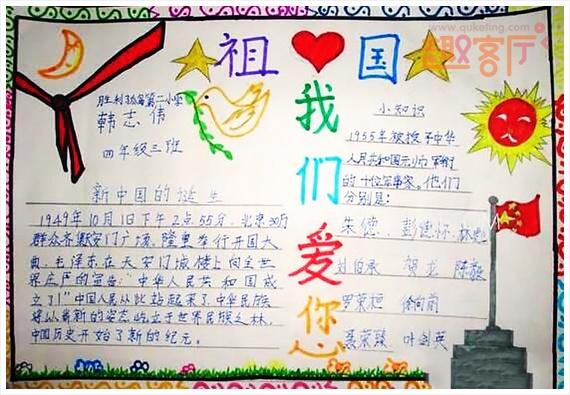 www.quketing.com
趣客厅
祖 国
我们爱你
胜利
第二小学
韩志伟
四年级三班
新中国的诞生
1949年10月1日下午2点55分,北京30万
群众齐聚天安门广场,隆重举行开国大
典,毛泽东在天安门城楼上向全世
界庄严的宣告:"中华人民共和国成
立了!"中国人民从此站起来了,中华民族
将以崭新的姿态屹立于世界民族之林,
中国历史开始了新的纪元。
小知识
1955年被授予中华
人民共和国元帅军衔
的十位军事家。他们
分别是:
朱德、彭德怀、林彪
刘伯承 贺龙 陈毅
罗荣桓 徐向前
聂荣臻 叶剑英